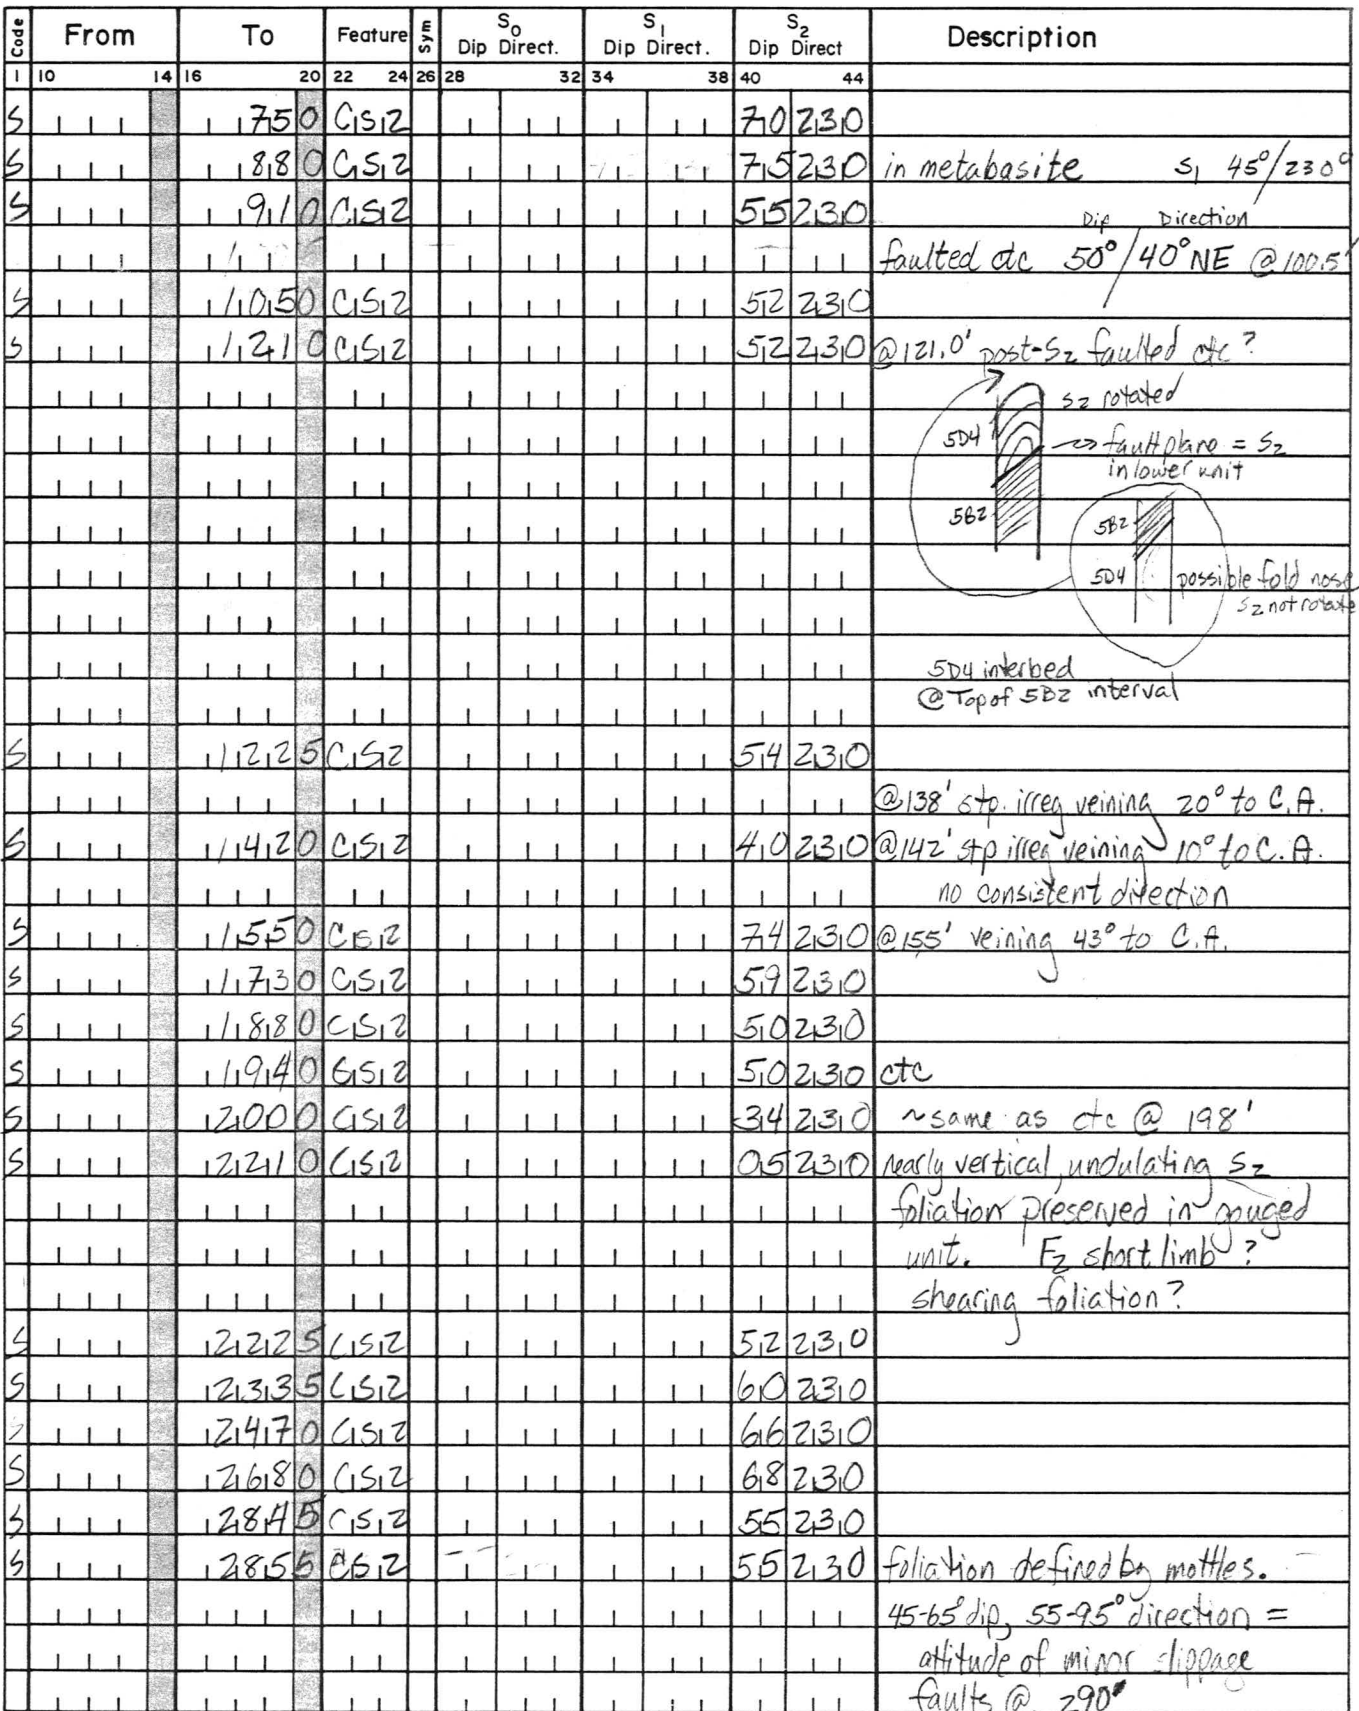 Code From To Feature Sym S0 Dip Direct. S1 Dip Direct. S2 Dip Direct Description
1 10 14 16 20 22 24 26 28 32 34 38 40 44
S 750 CS2 70 230
S 880 CS2 75 230 in metabasite S1 45°/230°
S 910 CS2 55 230
Dip Direction
faulted ctc 50°/40° NE @ 100.5'
S 1050 CS2 52 230
S 1210 CS2 52 230 @ 121.0' post-S2 faulted ctc?
S2 rotated
5D4 → fault plane = S2
in lower unit
5B2
5B2
5D4 possible fold nose
S2 not rotate
5D4 interbed
@ Top of 5B2 interval
S 1225 CS2 54 230
@ 138' stp. irreg veining 20° to C.A.
S 1420 CS2 40 230 @ 142' stp irreg veining 10° to C.A.
no consistent direction
S 1550 CS2 74 230 @ 155' veining 43° to C.A.
S 1730 CS2 59 230
S 1880 CS2 50 230
S 1940 CS2 50 230 ctc
S 2000 CS2 34 230 ~same as ctc @ 198'
S 2210 CS2 05 230 nearly vertical, undulating S2
foliation preserved in gouged
unit. F2 short limb?
shearing foliation?
S 2225 CS2 52 230
S 2335 CS2 60 230
S 2470 CS2 66 230
S 2680 CS2 68 230
S 2845 CS2 55 230
S 2855 CS2 55 230 foliation defined by mottles.
45-65° dip, 55-95° direction =
attitude of minor slippage
faults @ 290'